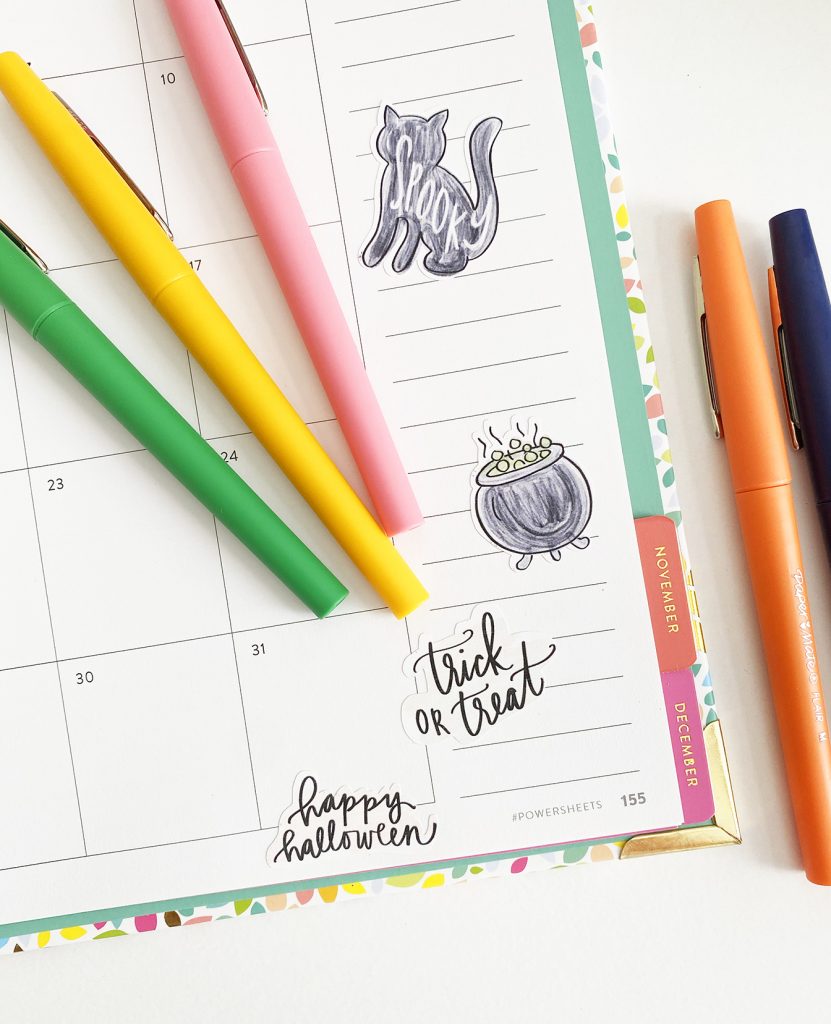 10
17
23
24
30
31
SPOOKY
trick
OR treat
happy
halloween
#POWERSHEETS 155
NOVEMBER
DECEMBER
Paper Mate® FLAIR M